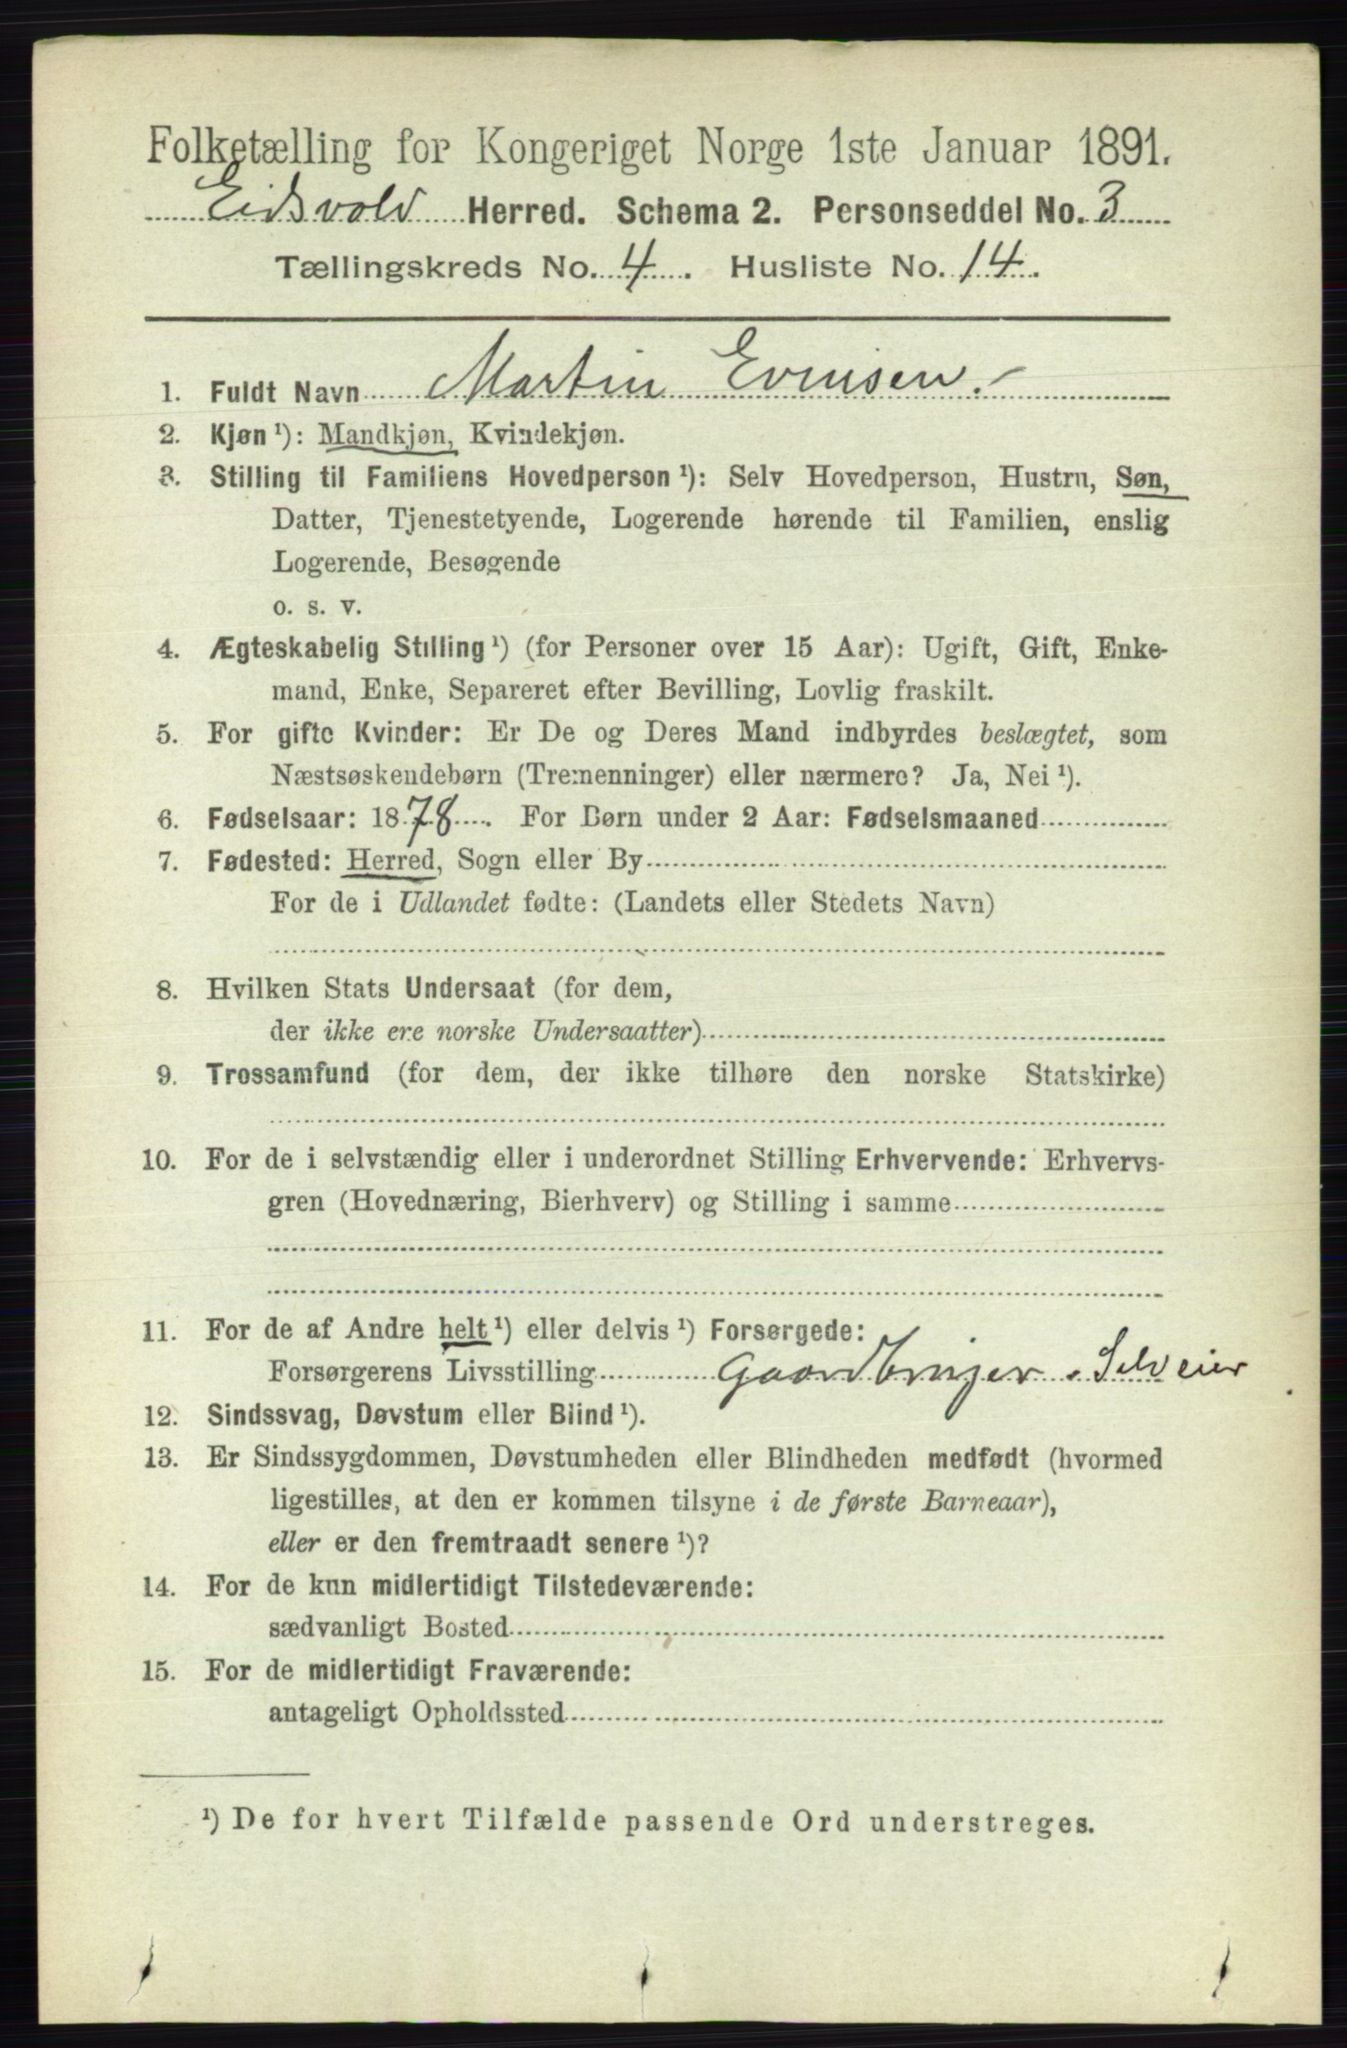 Folketælling for Kongeriget Norge 1ste Januar 1891.
Eidsvold Herred. Schema 2. Personseddel No. 3
Tællingskreds No. 4. Husliste No. 14.
1. Fuldt Navn Martin Evensen.
2. Kjøn ¹): Mandkjøn, Kvindekjøn.
3. Stilling til Familiens Hovedperson ¹): Selv Hovedperson, Hustru, Søn,
Datter, Tjenestetyende, Logerende hørende til Familien, enslig
Logerende, Besøgende
o. s. v.
4. Ægteskabelig Stilling ¹) (for Personer over 15 Aar): Ugift, Gift, Enke-
mand, Enke, Separeret efter Bevilling, Lovlig fraskilt.
5. For gifte Kvinder: Er De og Deres Mand indbyrdes beslægtet, som
Næstsøskendebørn (Tremenninger) eller nærmere? Ja, Nei ¹).
6. Fødselsaar: 1878. For Børn under 2 Aar: Fødselsmaaned
7. Fødested: Herred, Sogn eller By
For de i Udlandet fødte: (Landets eller Stedets Navn)
8. Hvilken Stats Undersaat (for dem,
der ikke ere norske Undersaatter)
9. Trossamfund (for dem, der ikke tilhøre den norske Statskirke)
10. For de i selvstændig eller i underordnet Stilling Erhvervende: Erhvervs-
gren (Hovednæring, Bierhverv) og Stilling i samme
11. For de af Andre helt ¹) eller delvis ¹) Forsørgede:
Forsørgerens Livsstilling Gaardbruger. Selveier
12. Sindssvag, Døvstum eller Blind ¹).
13. Er Sindssygdommen, Døvstumheden eller Blindheden medfødt (hvormed
ligestilles, at den er kommen tilsyne i de første Barneaar),
eller er den fremtraadt senere ¹)?
14. For de kun midlertidigt Tilstedeværende:
sædvanligt Bosted
15. For de midlertidigt Fraværende:
antageligt Opholdssted
¹) De for hvert Tilfælde passende Ord understreges.